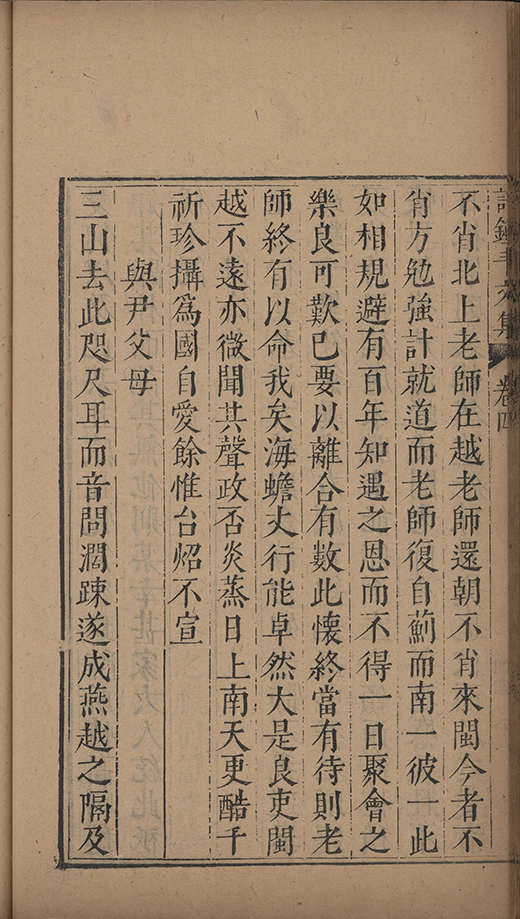 不肖北上老師在越老師還朝不肖來閩今者不
肖方勉強計就道而老師復自薊而南一彼一此
如相規避有百年知遇之恩而不得一日聚會之
樂良可歎已要以離合有數此懷終當有待則老
師終有以命我矣海蟾丈行能卓然大是良吏閩
越不遠亦微聞其聲政否炎蒸日上南天更酷千
祈珍攝爲國自愛餘惟台炤不宣
與尹父母
三山去此咫尺耳而音問濶踈遂成燕越之隔及